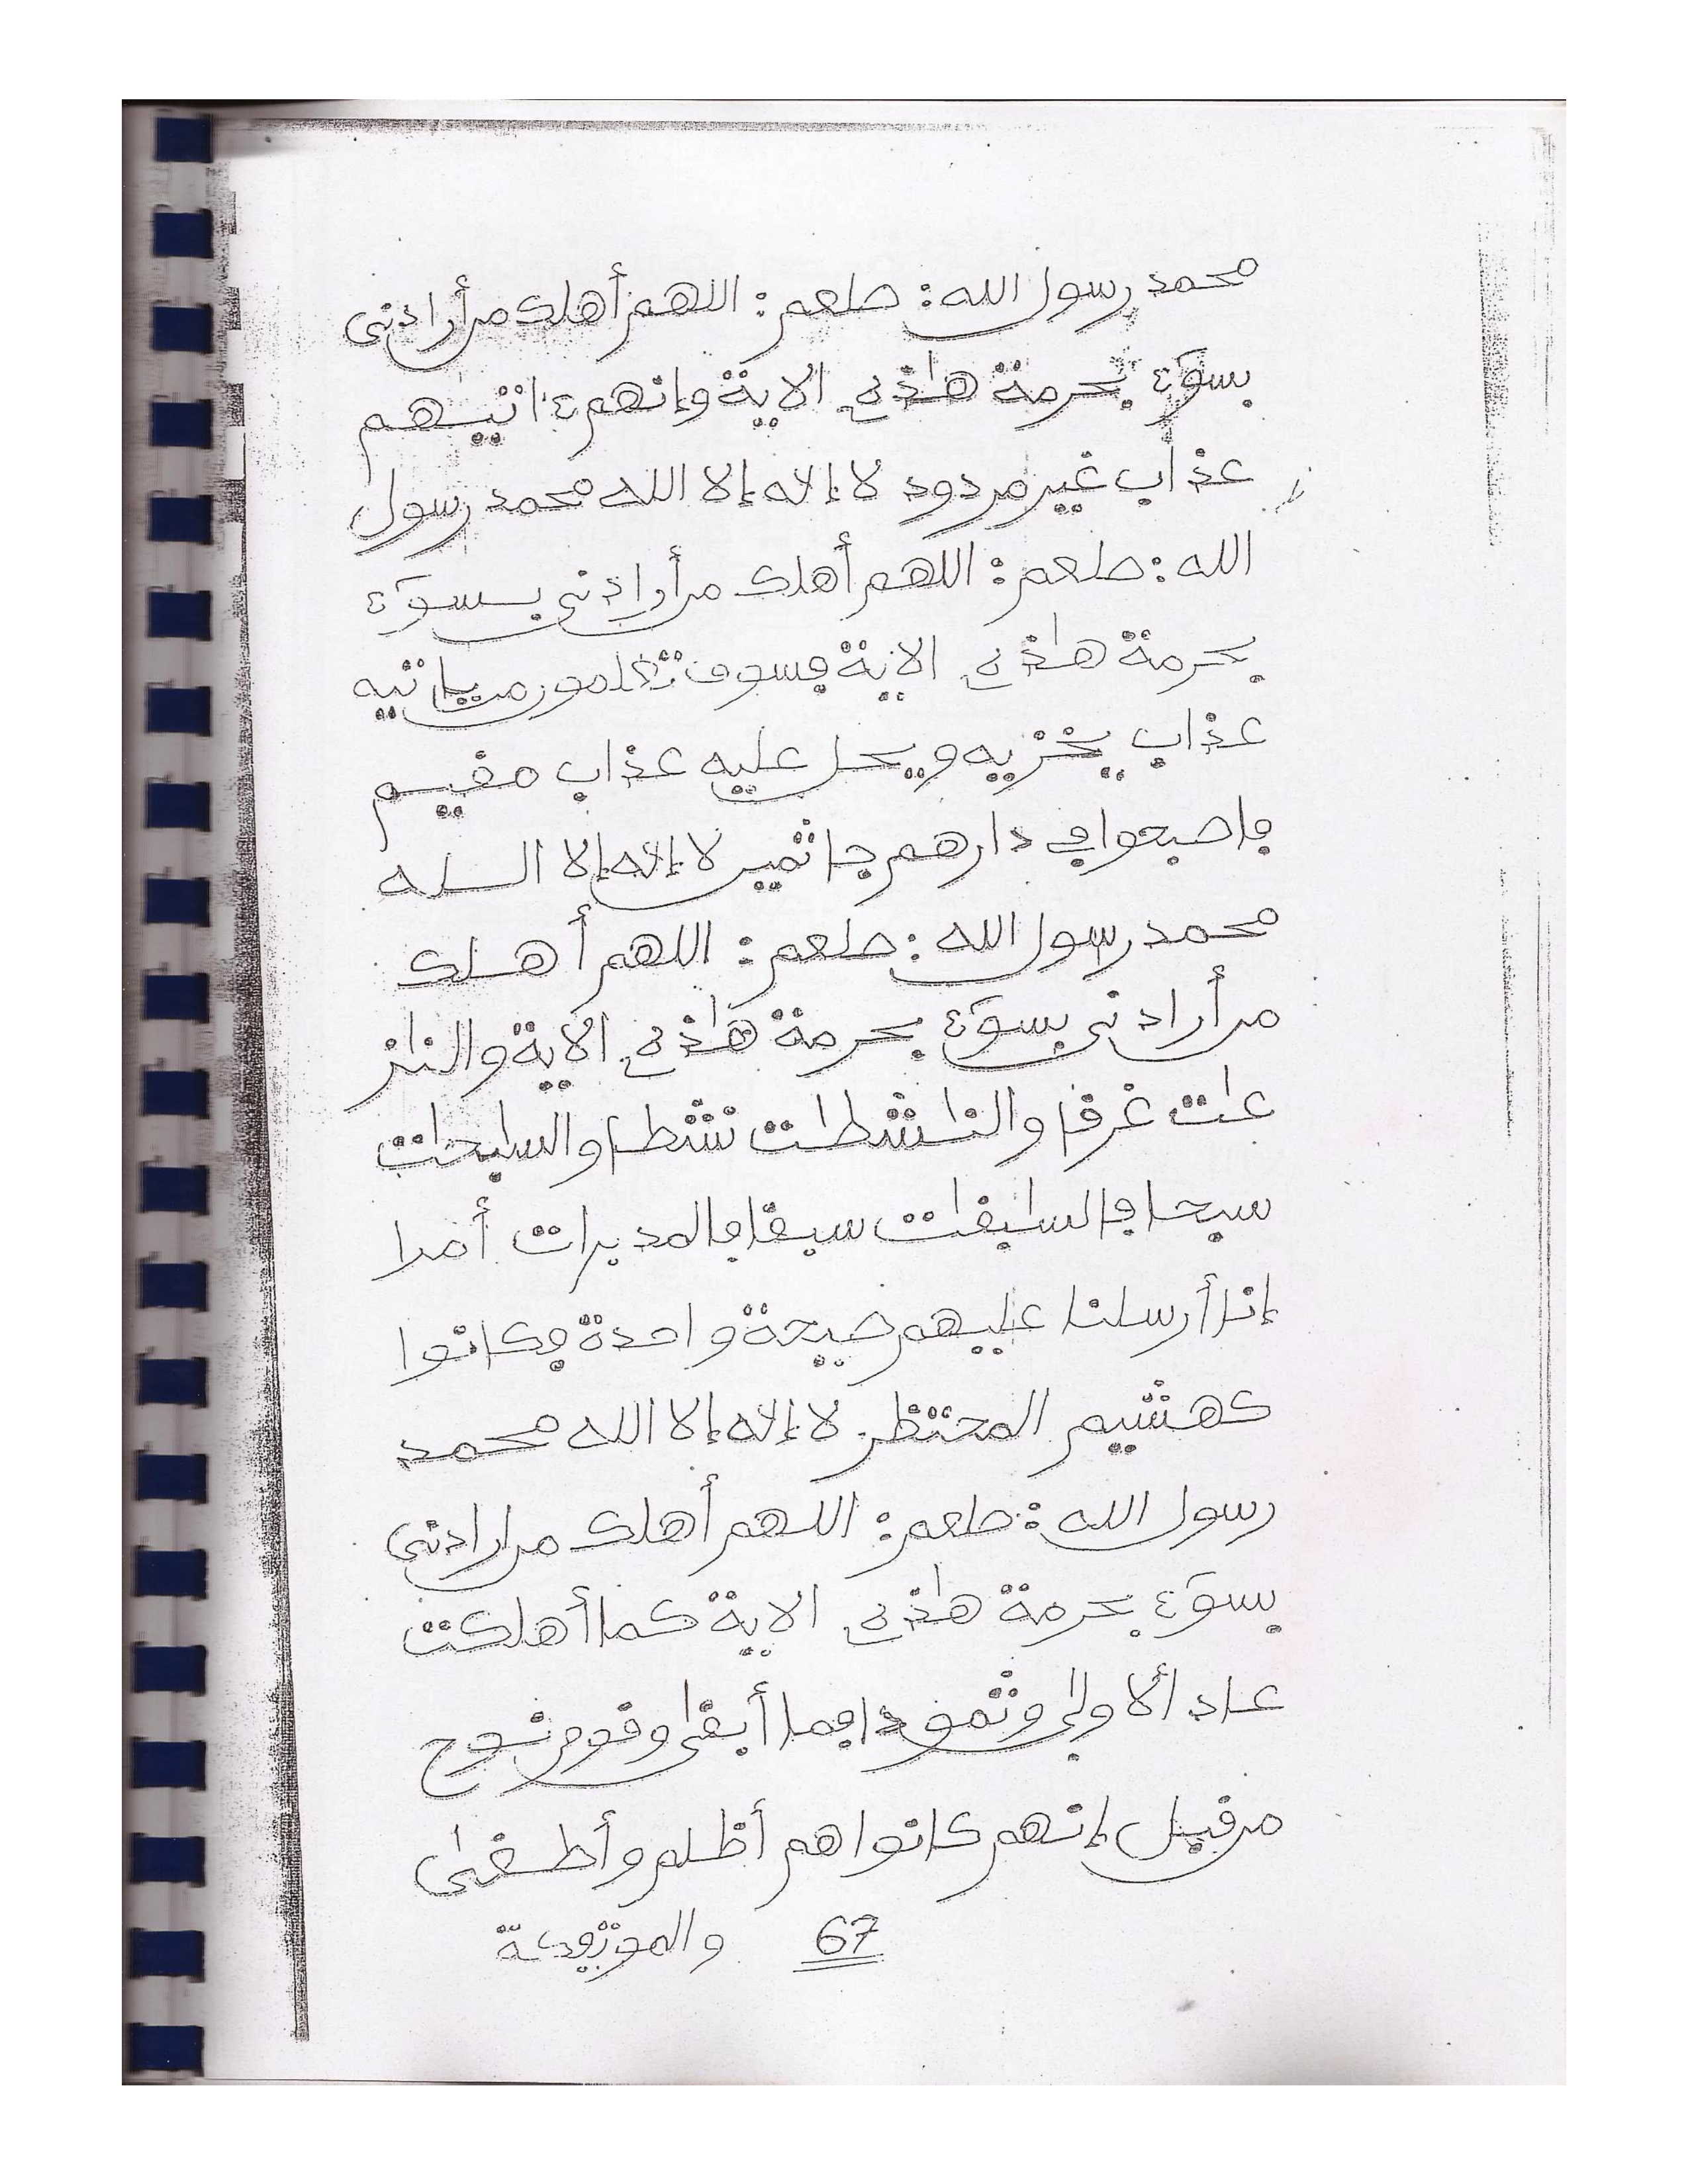 محمد رسول الله: صلعم: اللهم أهلك من أرادني
بسوء بحرمة هاذه الاية وإنهم ءاتيهم
عذاب غير مردود لا إله إلا الله محمد رسول
الله: صلعم: اللهم أهلك من أرادني بسوء
بحرمة هاذه الاية فسوف تعلمون من ياتيه
عذاب يخزيه ويحل عليه عذاب مقيم
فاصبحوا في دارهم جاثمين لا إله إلا الله
محمد رسول الله: صلعم: اللهم أهلك
من أرادني بسوء بحرمة هاذه الاية والنز
عات غرقا والناشطات نشطا والسابحات
سبحا فالسابقات سبقا فالمدبرات أمرا
إنا أرسلنا عليهم صيحة واحدة فكانوا
كهشيم المحتظر لا إله إلا الله محمد
رسول الله: صلعم: اللهم أهلك من ارادني
بسوء بحرمة هاذه الاية كما أهلكت
عاد ألاولى وثمودا فما أبقى وقوم نوح
من قبل إنهم كانوا هم أظلم وأطغى
67 والموتفكة